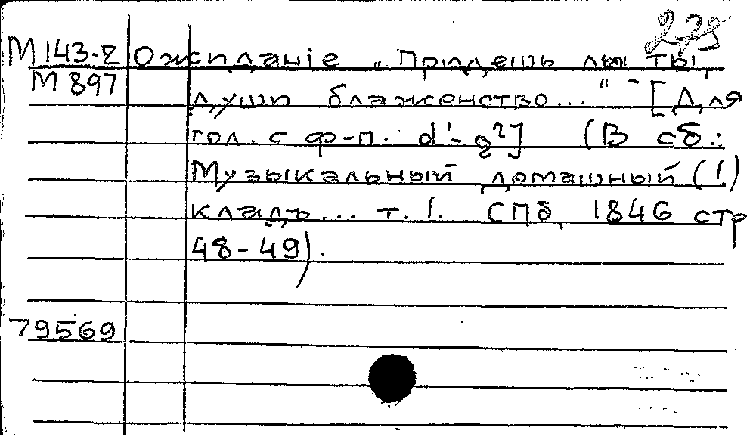 225
М 143-2 Ожиданіе „Придешь ль ты,
М 897 души блаженство..." - [Для
гол. с ф-п. d¹-g²] (В сб.:
Музыкальный домашный (!)
кладъ... т. 1. СПб, 1846 стр
48-49).
79569